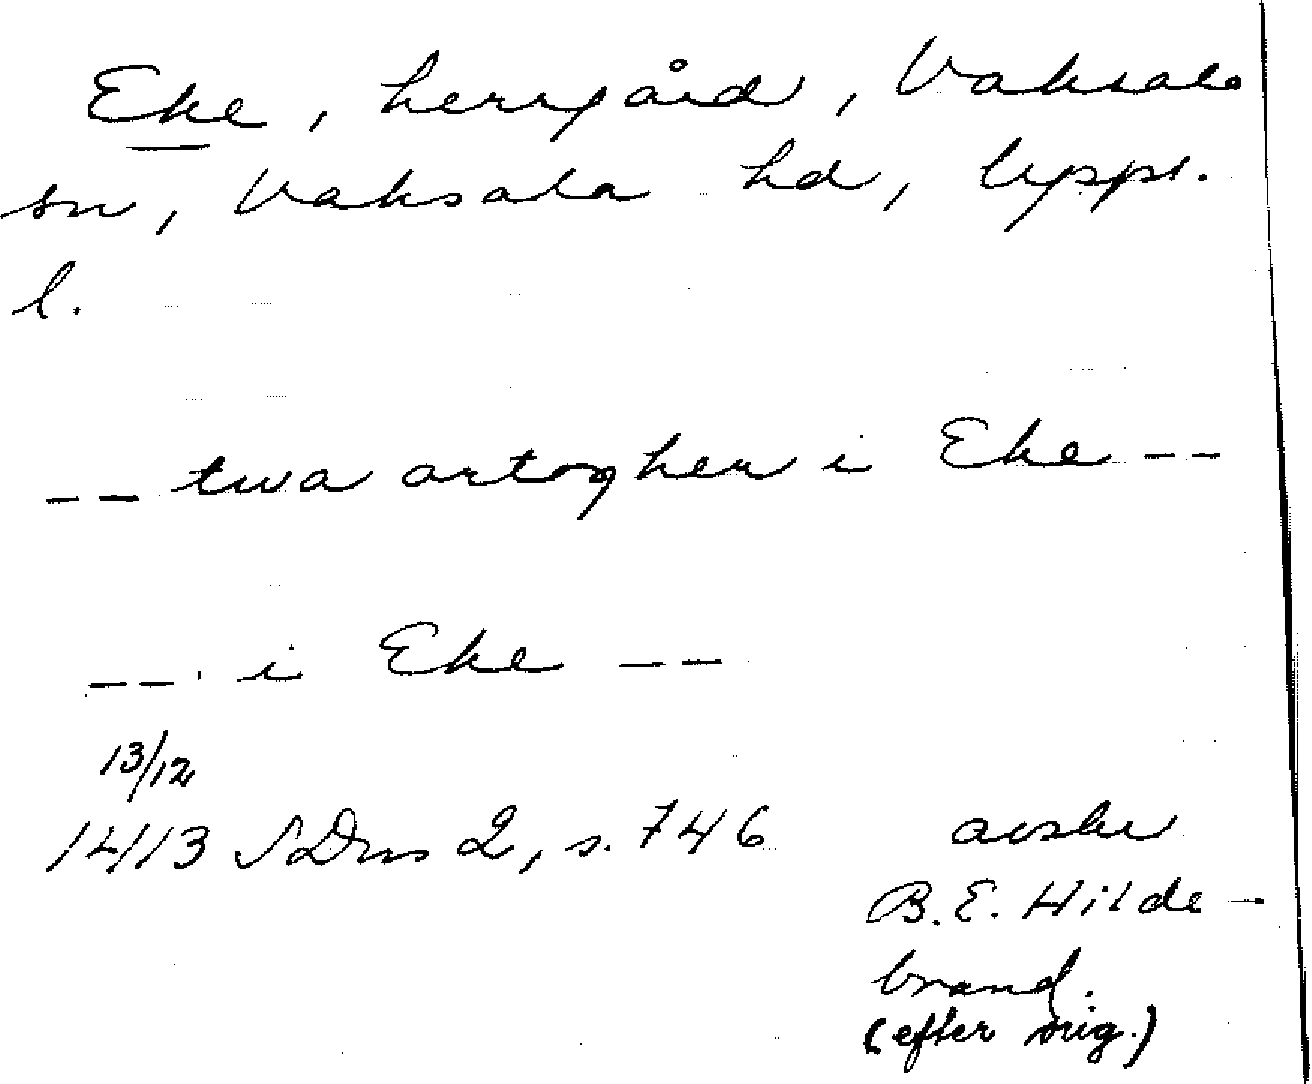 Eke, herrgård, Vaksala
sn, Vaksala hd, Upps.
l.
-- twa ortogher i Eke --
-- i Eke --
13/12
1413 SDns 2, s. 746
avskr
B.E. Hilde-
brand.
(efter orig.)